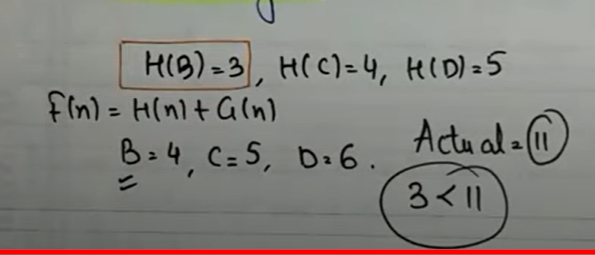 H(B)=3, H(C)=4, H(D)=5
F(n) = H(n) + G(n)
B=4, C=5, D=6. Actual=11
3<11